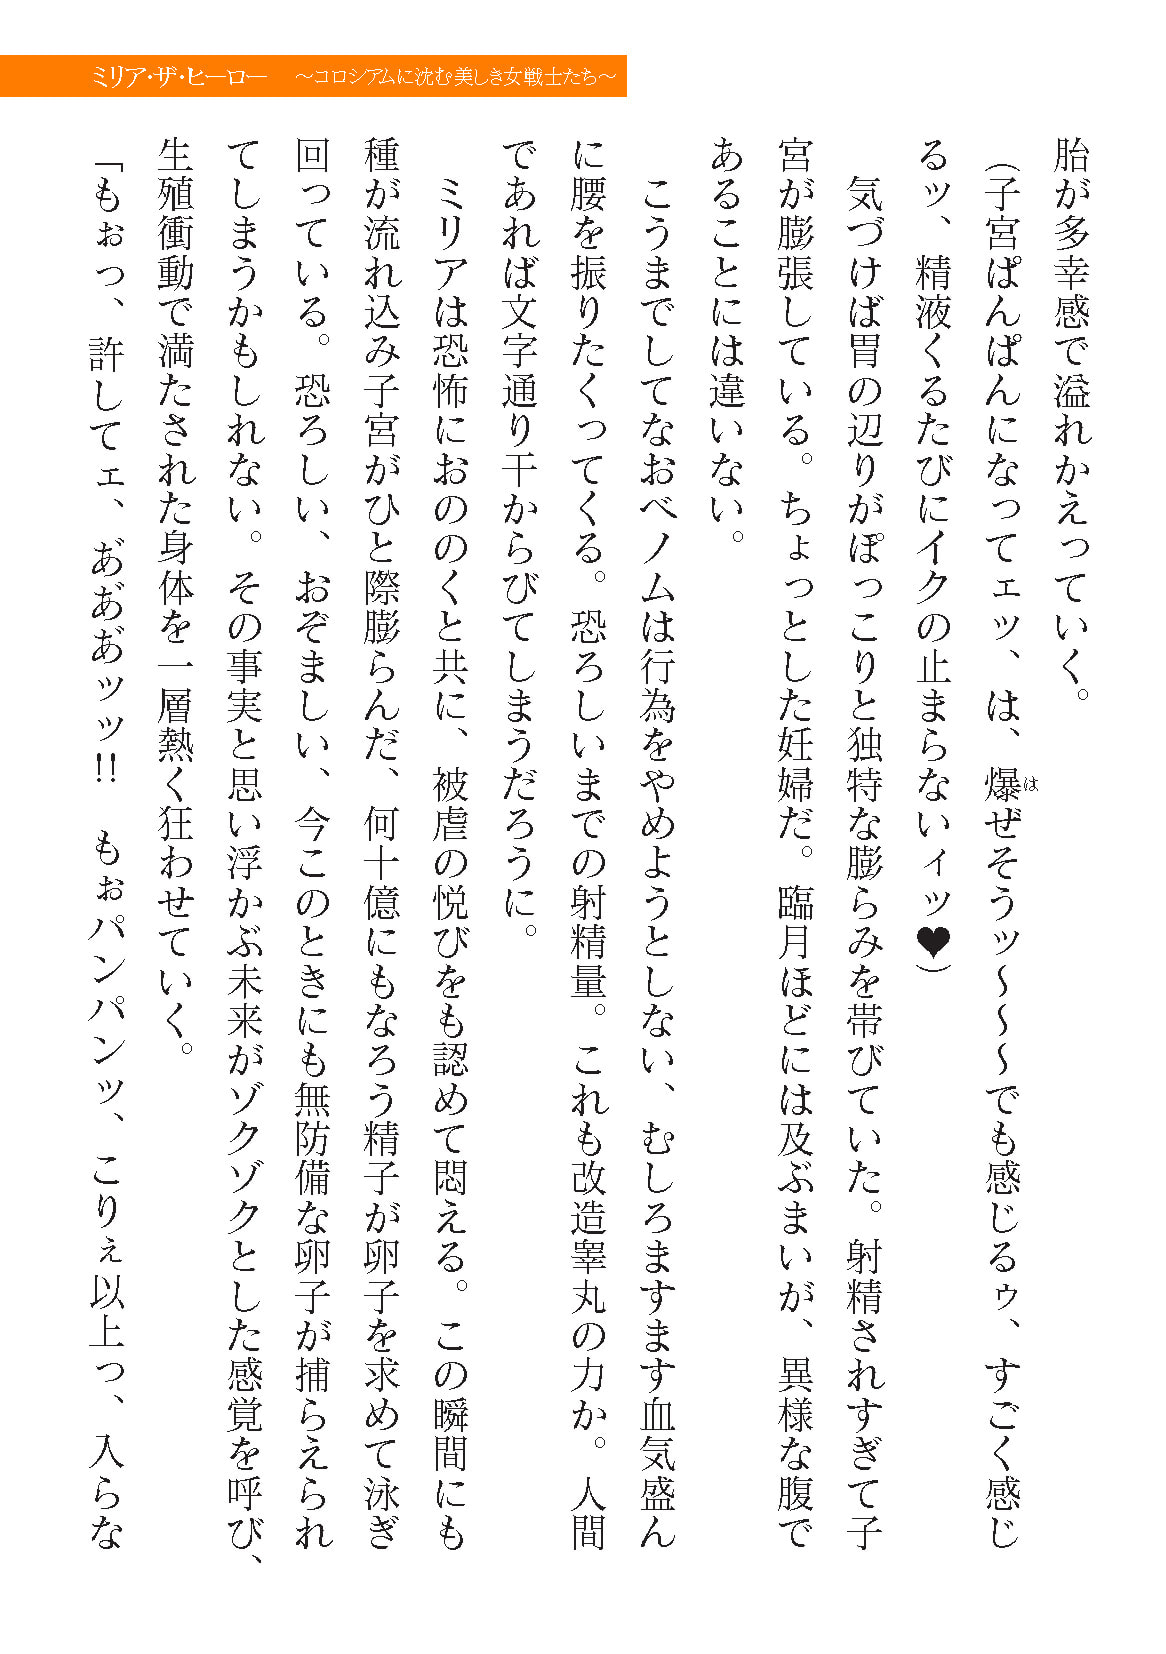 ミリア・ザ・ヒーロー　～コロシアムに沈む美しき女戦士たち～
胎が多幸感で溢れかえっていく。
（子宮ぱんぱんになってェッ、は、爆ぜそうッ～～～でも感じるゥ、すごく感じ
るッ、精液くるたびにイクの止まらないィッ♥）
　気づけば胃の辺りがぽっこりと独特な膨らみを帯びていた。射精されすぎて子
宮が膨張している。ちょっとした妊婦だ。臨月ほどには及ぶまいが、異様な腹で
あることには違いない。
　こうまでしてなおベノムは行為をやめようとしない、むしろますます血気盛ん
に腰を振りたくってくる。恐ろしいまでの射精量。これも改造睾丸の力か。人間
であれば文字通り干からびてしまうだろうに。
　ミリアは恐怖におののくと共に、被虐の悦びをも認めて悶える。この瞬間にも
種が流れ込み子宮がひと際膨らんだ、何十億にもなろう精子が卵子を求めて泳ぎ
回っている。恐ろしい、おぞましい、今このときにも無防備な卵子が捕らえられ
てしまうかもしれない。その事実と思い浮かぶ未来がゾクゾクとした感覚を呼び、
生殖衝動で満たされた身体を一層熱く狂わせていく。
「もぉっ、許してェ、あ゛あ゛あ゛ッッ!!　もぉパンパンッ、こりぇ以上っ、入らな